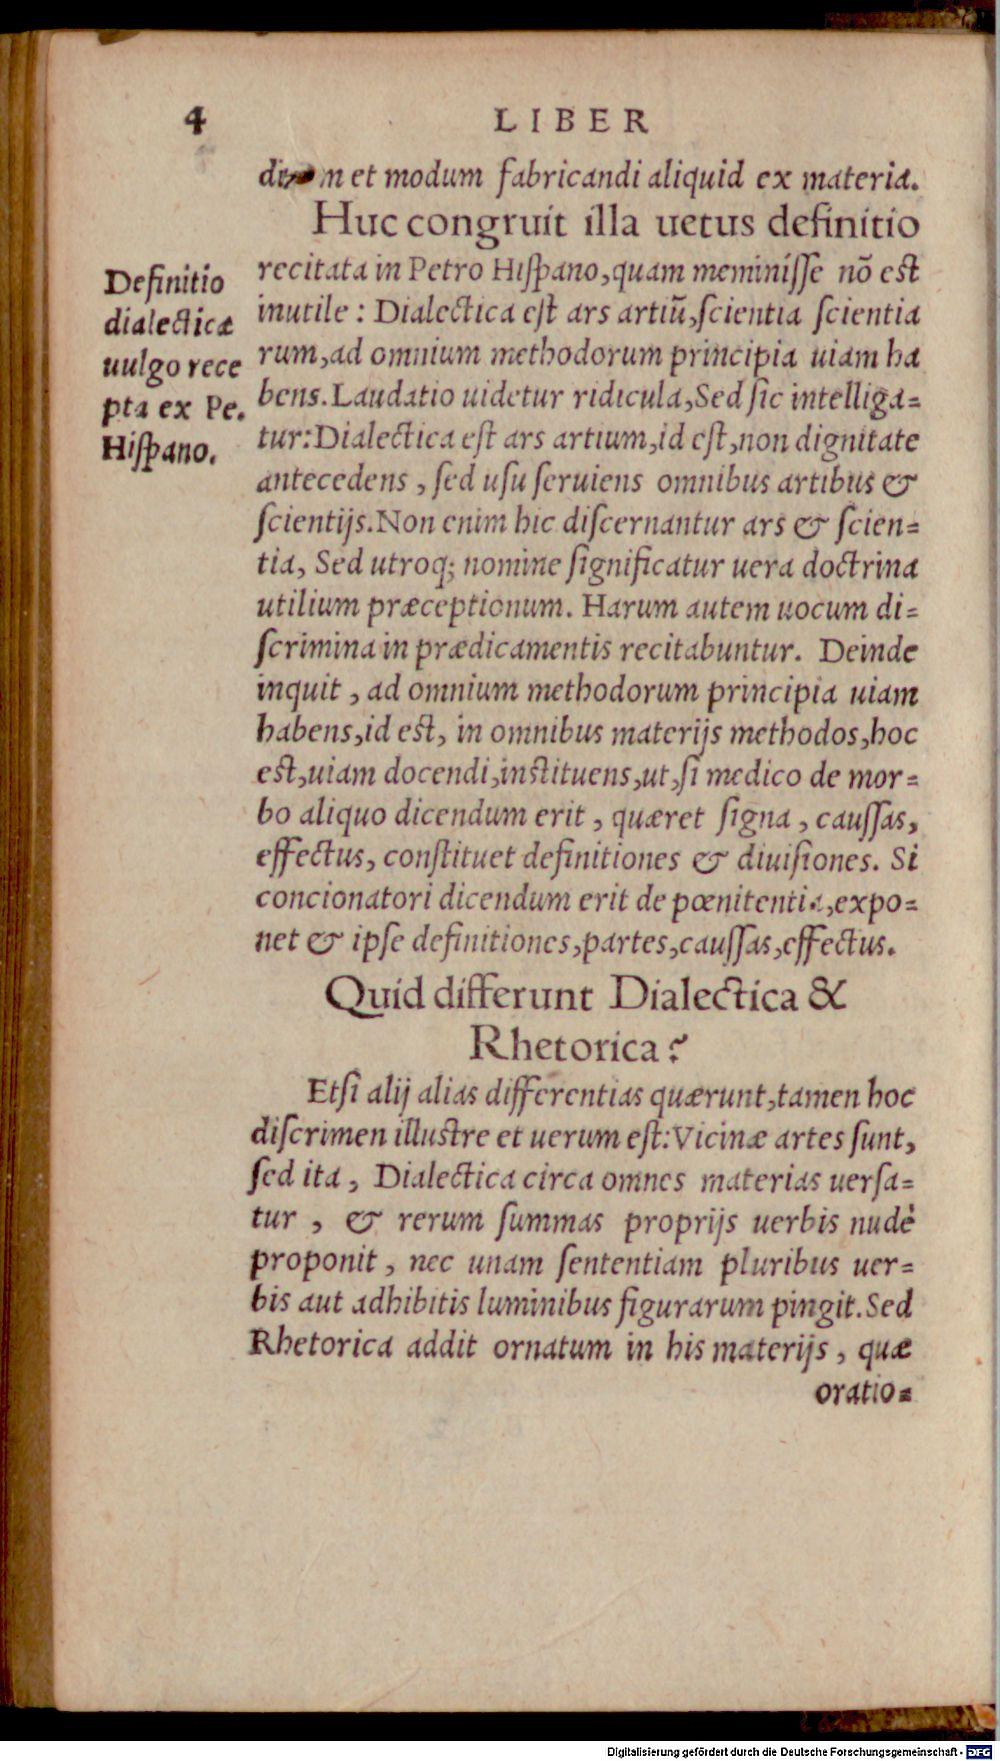 4
LIBER
m et modum fabricandi aliquid ex materia.
Huc congruit illa uetus definitio
recitata in Petro Hiſpano, quam meminiſſe nō est
inutile : Dialectica eſt ars artiũ, ſcientia ſcientia
rum, ad omnium methodorum principia uiam ha
bens. Laudatio uidetur ridicula, Sed ſic intelliga-
tur: Dialectica eſt ars artium, id eſt, non dignitate
antecedens, ſed uſu ſeruiens omnibus artibus &
ſcientijs. Non enim hic diſcernantur ars & ſcien-
tia, Sed utroq; nomine ſignificatur uera doctrina
utilium præceptionum. Harum autem uocum di-
ſcrimina in prædicamentis recitabuntur. Deinde
inquit, ad omnium methodorum principia uiam
habens, id est, in omnibus materijs methodos, hoc
est, uiam docendi, instituens, ut, ſi medico de mor-
bo aliquo dicendum erit, quæret ſigna, cauſſas,
effectus, conſtituet definitiones & diuiſiones. Si
concionatori dicendum erit de pœnitentia, expo-
net & ipſe definitiones, partes, cauſſas, effectus.
Definitio
dialecticæ
uulgo rece
pta ex Pe.
Hiſpano.
Quid differunt Dialectica &
Rhetorica?
Etſi alij alias differentias quærunt, tamen hoc
diſcrimen illuſtre et uerum eſt: Vicinæ artes ſunt,
ſed ita, Dialectica circa omnes materias uerſa-
tur, & rerum ſummas proprijs uerbis nudè
proponit, nec unam ſententiam pluribus uer-
bis aut adhibitis luminibus figurarum pingit. Sed
Rhetorica addit ornatum in his materijs, quæ
oratio-
Digitalisierung gefördert durch die Deutsche Forschungsgemeinschaft - DFG